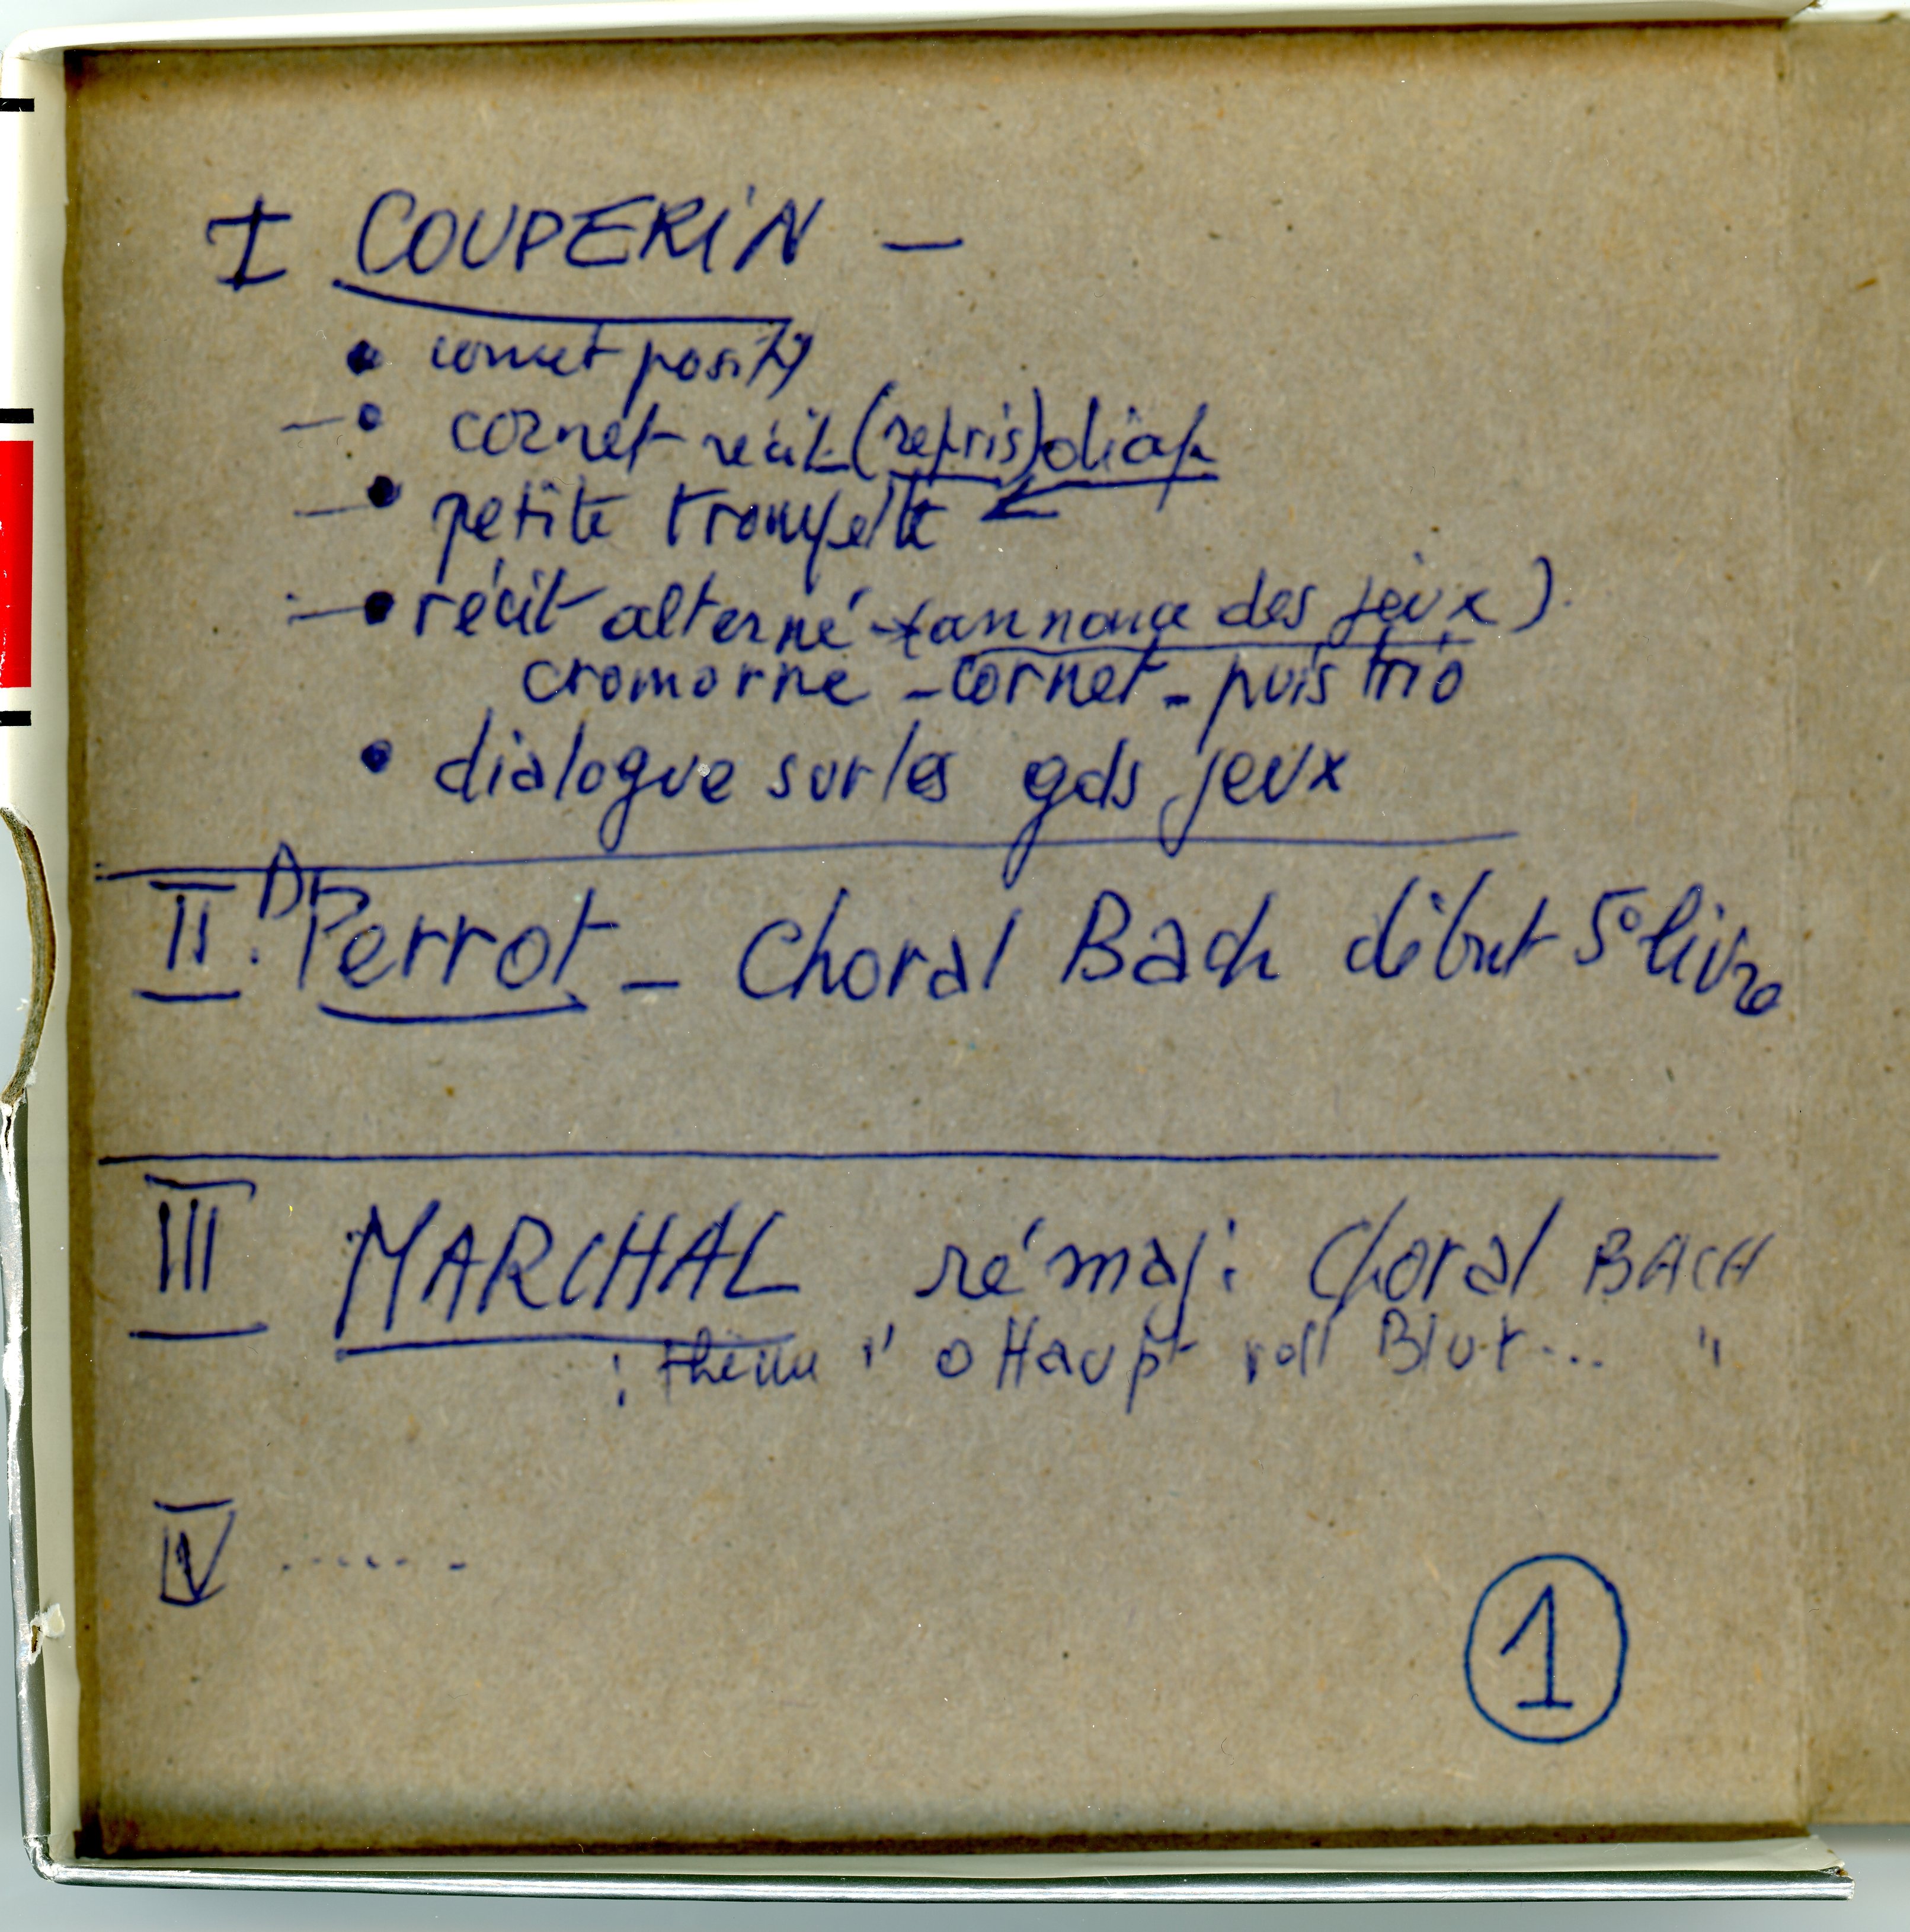 I COUPERIN –
• cornet positif
–• cornet récit (repris) diap
–• petite trompette
–• récit alterné (annonce des jeux)
cromorne – cornet – puis trio
• dialogue sur les gds jeux
II. Dr Perrot – Choral Bach début 5° livre
III MARCHAL ré maj : Choral BACH
: thème " O Haupt voll Blut... "
IV .......
1